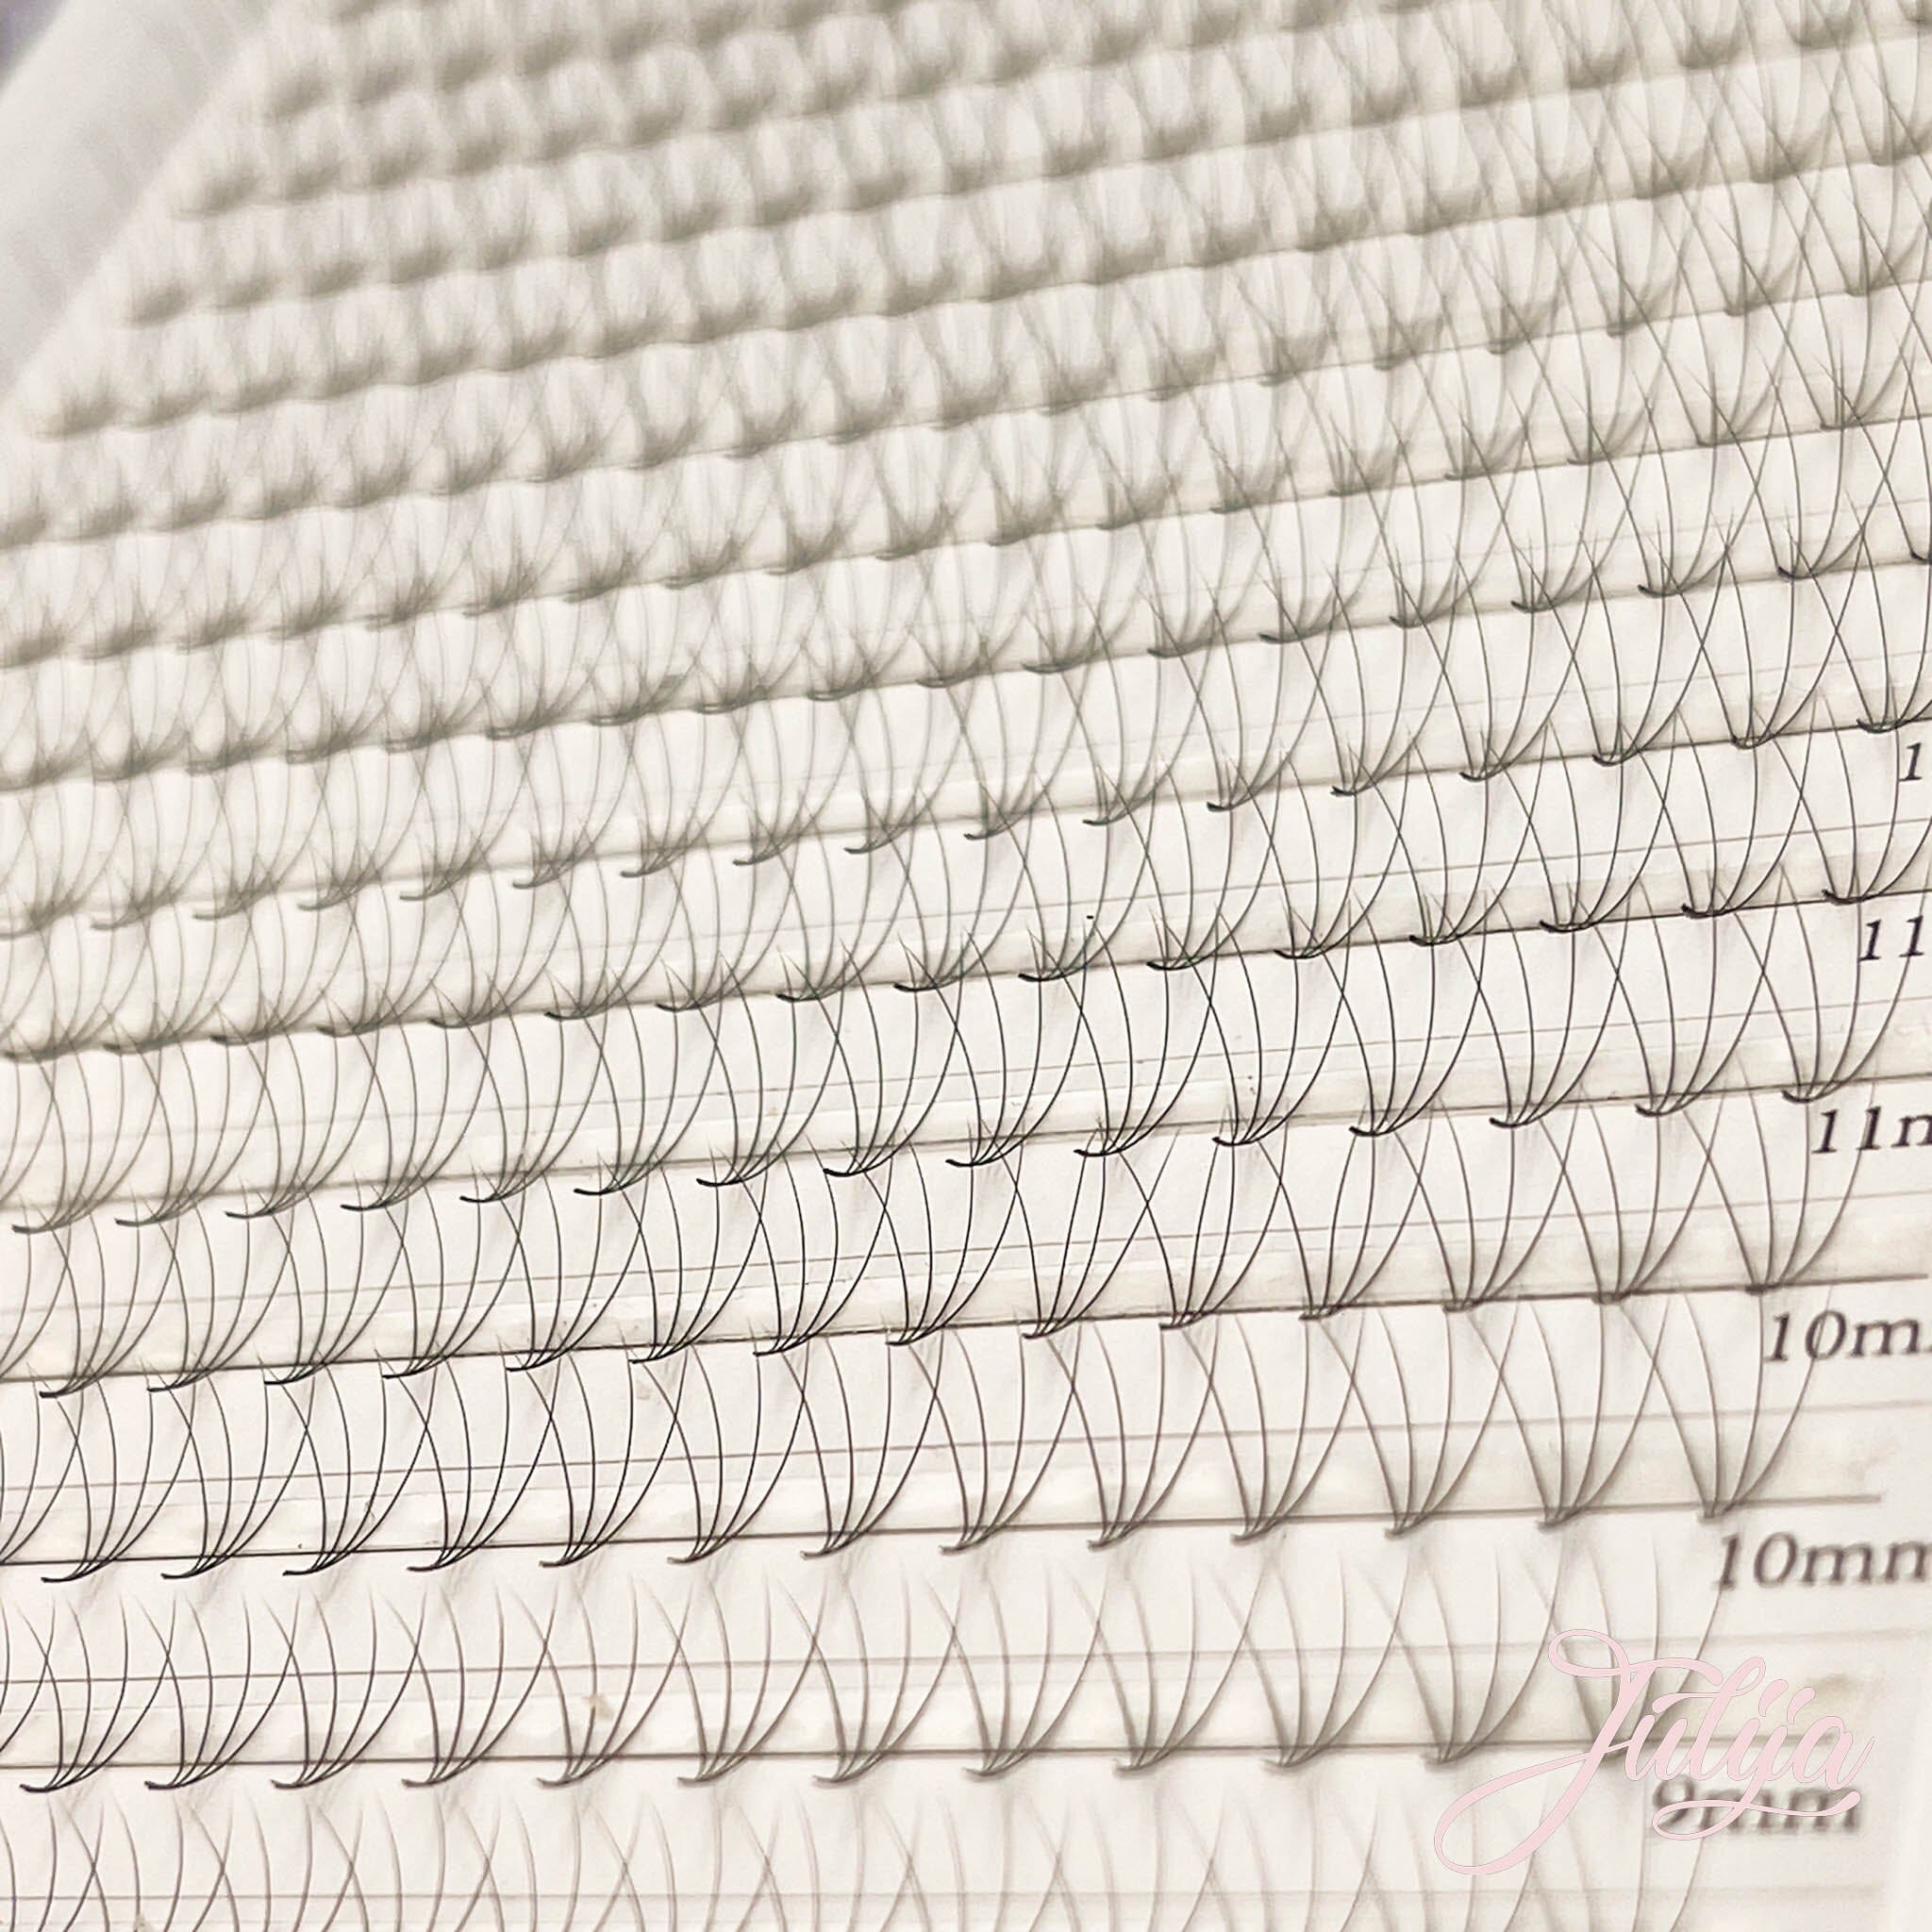 1
11
11m
10m
10mm
Julija
9mm